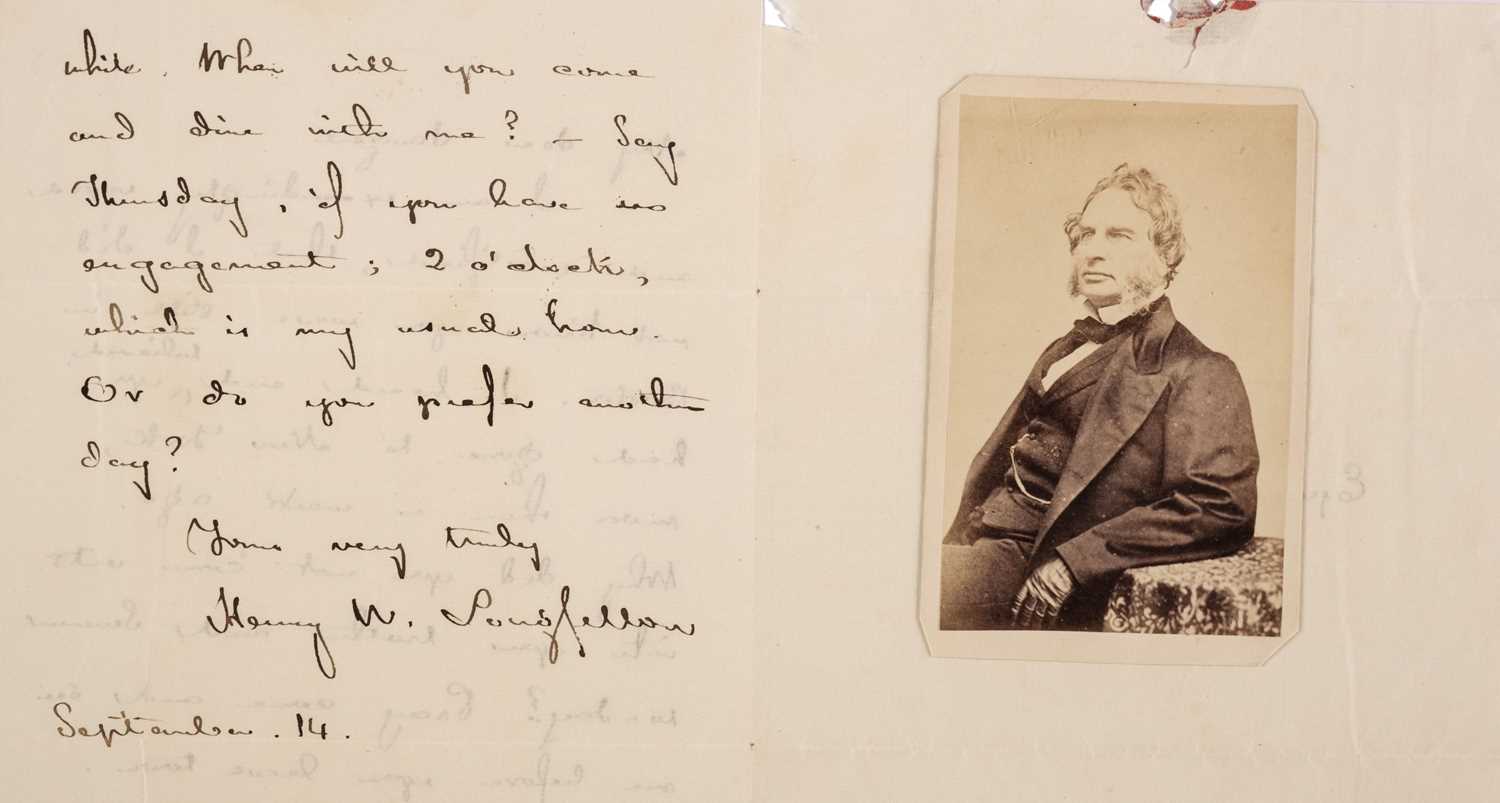 while. When will you come
and dine with me? – Say
Thursday, if you have no
engagement; 2 o'clock,
which is my usual hour.
Or do you prefer another
day?
Yours very truly
Henry W. Longfellow
September. 14.